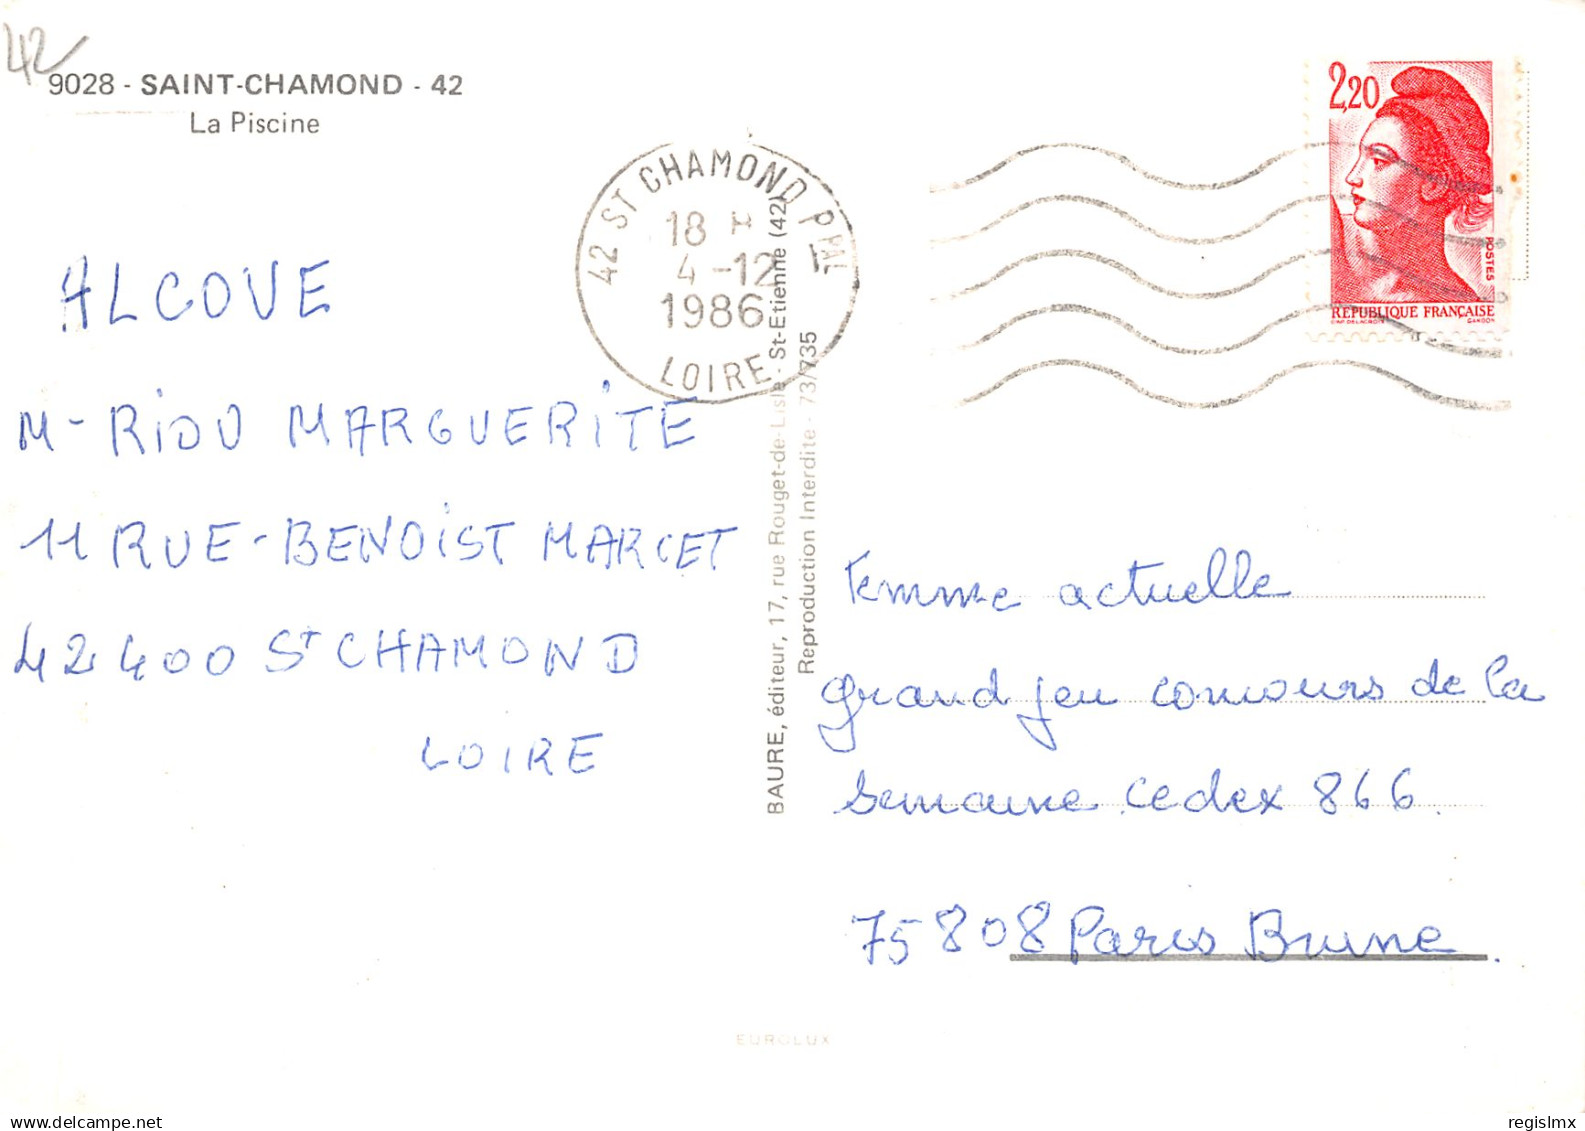 42
9028 - SAINT-CHAMOND - 42
La Piscine
42 ST CHAMOND PAL
18 H
4 -12
1986
LOIRE
2,20
POSTES
REPUBLIQUE FRANÇAISE
GANDON
ALCOVE
M- RIOU MARGUERITE
11 RUE-BENOIST MARCET
42400 ST CHAMOND
LOIRE
BAURE, éditeur, 17, rue Rouget-de-Lisle - St-Etienne (42)
Reproduction Interdite - 73/735
Femme actuelle
grand jeu concours de la
semaine cedex 866.
75808 Paris Brune.
EUROLUX
delcampe.net
regislmx